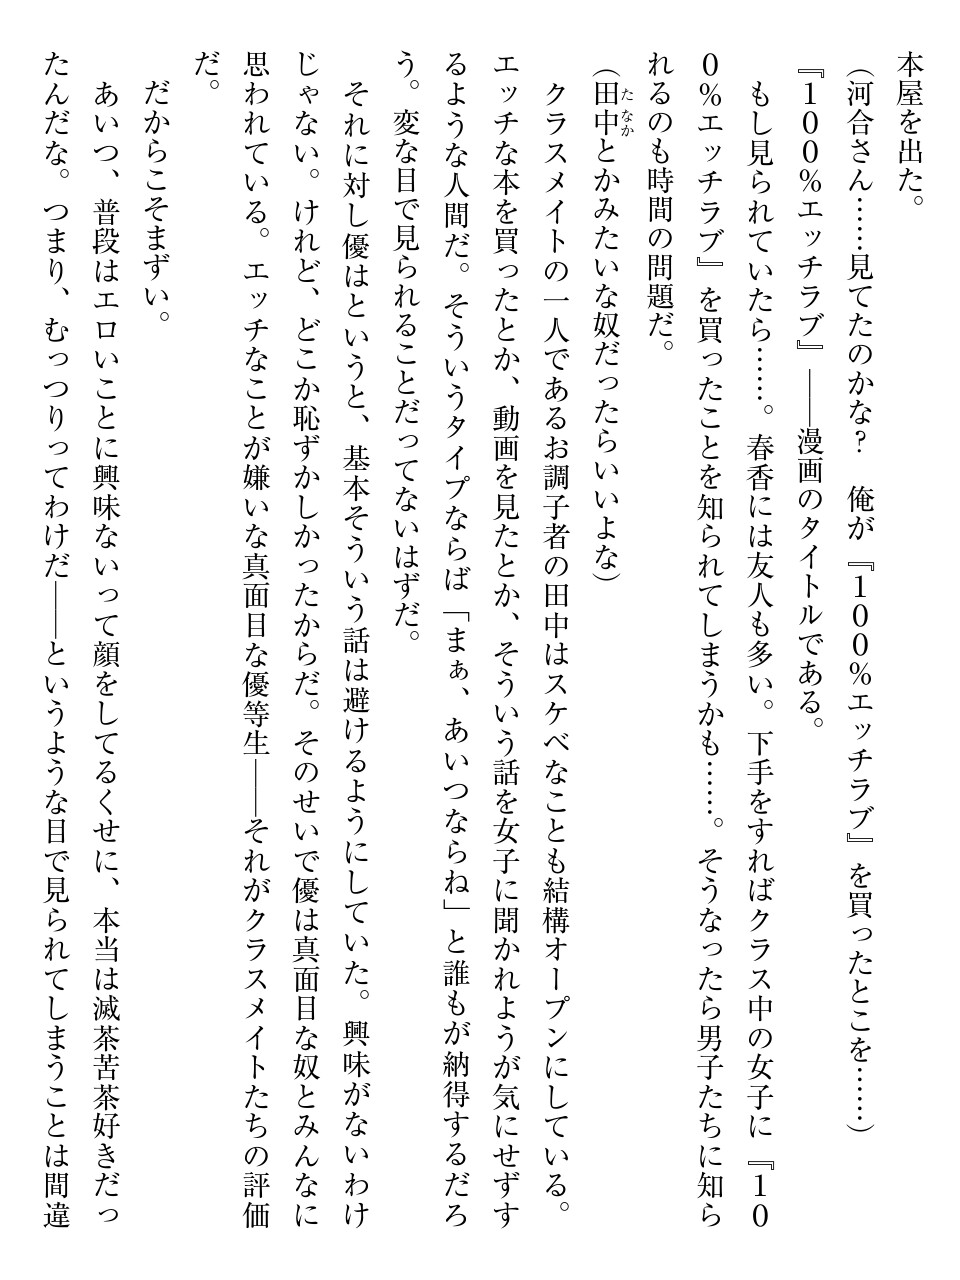 本屋を出た。
（河合さん……見てたのかな？　俺が『１００％エッチラブ』を買ったとこを……）
『１００％エッチラブ』――漫画のタイトルである。
　もし見られていたら……。春香には友人も多い。下手をすればクラス中の女子に『１０
０％エッチラブ』を買ったことを知られてしまうかも……。そうなったら男子たちに知ら
れるのも時間の問題だ。
（田中とかみたいな奴だったらいいよな）
たなか
　クラスメイトの一人であるお調子者の田中はスケベなことも結構オープンにしている。
エッチな本を買ったとか、動画を見たとか、そういう話を女子に聞かれようが気にせずす
るような人間だ。そういうタイプならば「まぁ、あいつならね」と誰もが納得するだろ
う。変な目で見られることだってないはずだ。
　それに対し優はというと、基本そういう話は避けるようにしていた。興味がないわけ
じゃない。けれど、どこか恥ずかしかったからだ。そのせいで優は真面目な奴とみんなに
思われている。エッチなことが嫌いな真面目な優等生――それがクラスメイトたちの評価
だ。
　だからこそまずい。
　あいつ、普段はエロいことに興味ないって顔をしてるくせに、本当は滅茶苦茶好きだっ
たんだな。つまり、むっつりってわけだ――というような目で見られてしまうことは間違